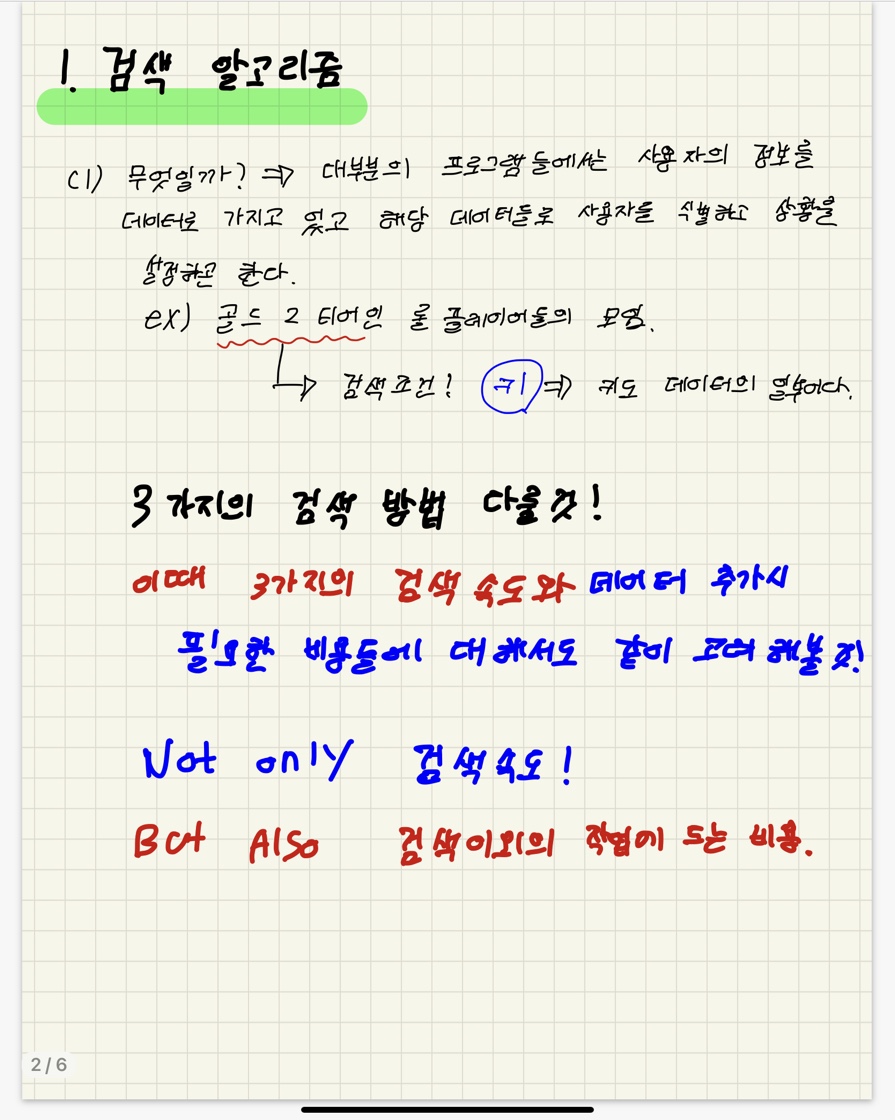 1. 검색 알고리즘
(1) 무엇일까? ⇒ 대부분의 프로그램들에서는 사용자의 정보를
데이터로 가지고 있고 해당 데이터들로 사용자들 식별하고 상황을
설정하곤 한다.
ex) 골드 2 티어인 롤 플레이어들의 모임.
검색조건! 키 ⇒ 키도 데이터의 일부이다.
3가지의 검색 방법 다룰것!
이때 3가지의 검색 속도와 데이터 추가시
필요한 비용들에 대해서도 같이 고려해볼 것!
Not only 검색속도!
But Also 검색이외의 작업에 드는 비용.
2/6